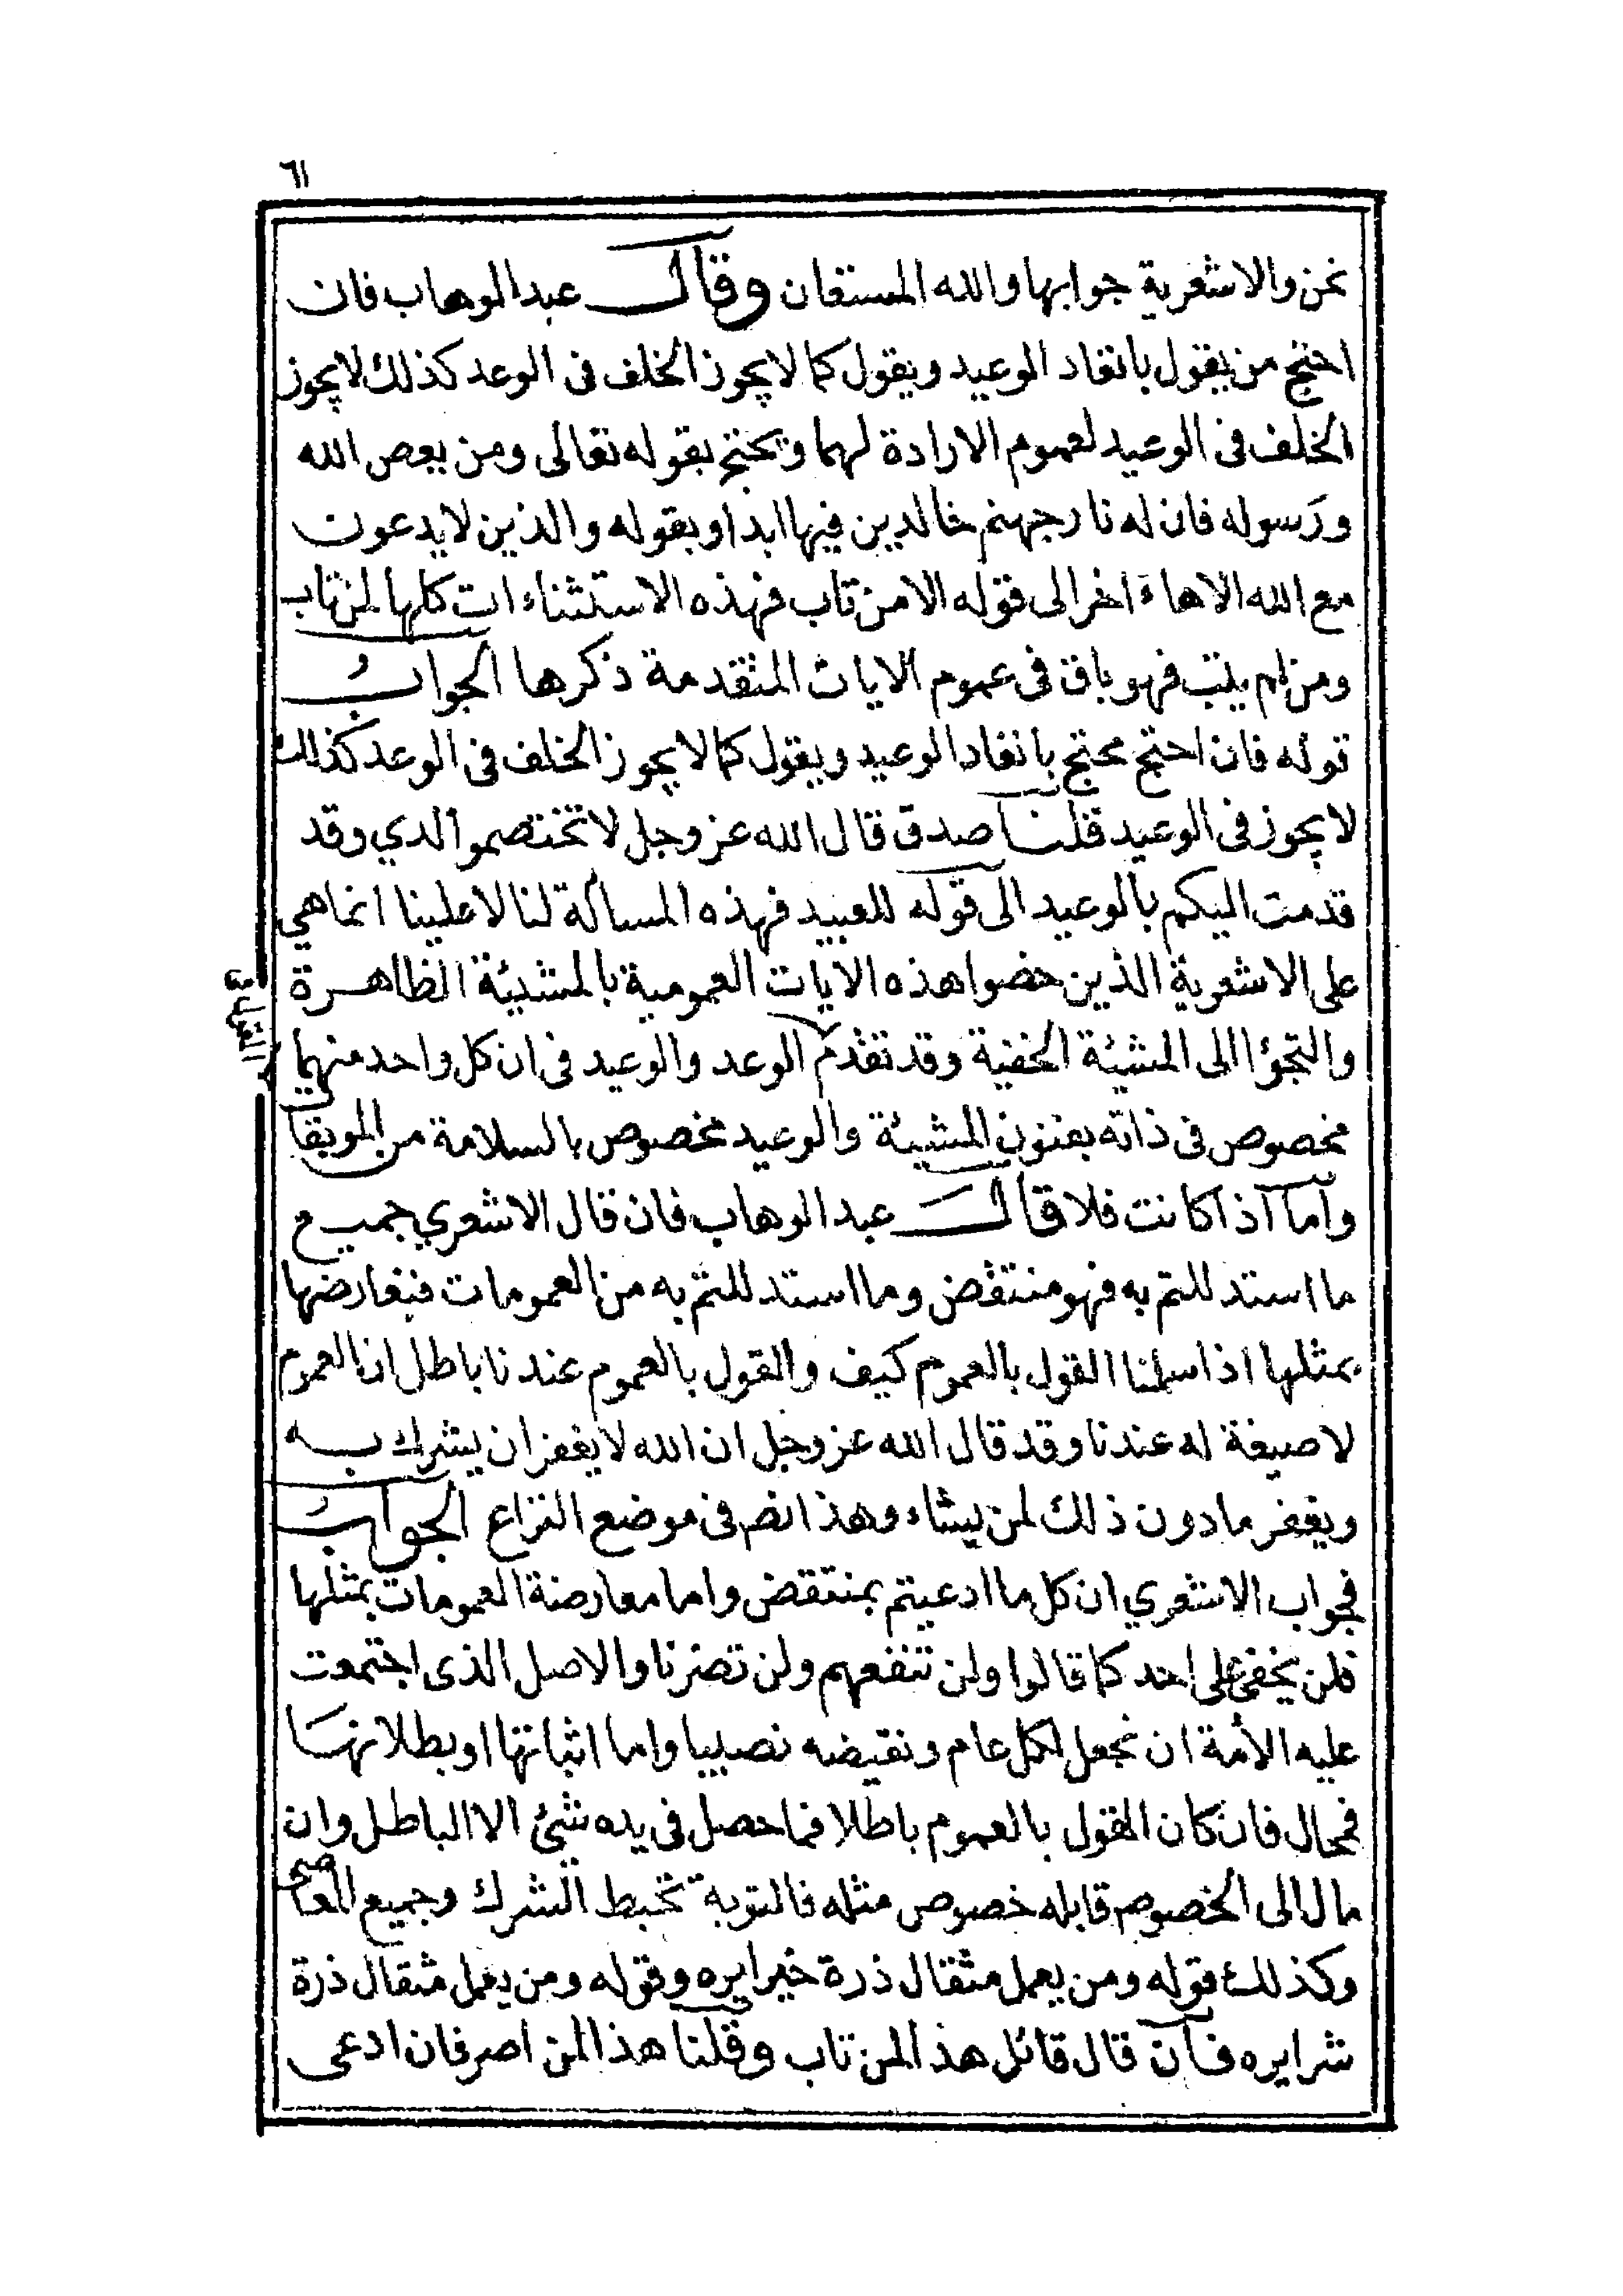 ٦١
نحن والاشعرية جوابها والله المستعان وقال عبد الوهاب فان
احتج من يقول بانفاد الوعيد ويقول كما لا يجوز الخلف في الوعد كذلك لا يجوز
الخلف في الوعيد لعموم الارادة لهما ويحتج بقوله تعالى ومن يعص الله
ورسوله فان له نار جهنم خالدين فيها ابدا وبقوله والذين لا يدعون
مع الله الاهاء اخر الى قوله الا من تاب فهذه الاستثناءات كلها لمن تاب
ومن لم يتب فهو باق في عموم الايات المتقدمة ذكرها الجوابُ
قوله فان احتج محتج بانفاد الوعيد ويقول كما لا يجوز الخلف في الوعد كذلك
لا يجوز في الوعيد قلنا صدق قال الله عز وجل لا تختصموا لدي وقد
قدمت اليكم بالوعيد الى قوله للعبيد فهذه المسألة لنا لا علينا انما هي
على الاشعرية الذين خصوا هذه الايات العمومية بالمشيئة الظاهرة
والتجؤا الى المشيئة الخفية وقد تقدم الوعد والوعيد في ان كل واحد منهما
مخصوص في ذاته بفنون المشيئة والوعيد مخصوص بالسلامة من الموبقات
وأما اذا كانت فلا قال عبد الوهاب فان قال الاشعري جميع
ما استدللتم به فهو منتقض وما استدللتم به من العمومات فنعارضها
بمثلها اذا سلمنا القول بالعموم كيف والقول بالعموم عندنا باطل ان العموم
لا صيغة له عندنا وقد قال الله عز وجل ان الله لا يغفر ان يشرك به
ويغفر ما دون ذلك لمن يشاء وهذا نص في موضع النزاع الجوابُ
فجواب الاشعري ان كل ما ادعيتم بمنتقض واما معارضة العمومات بمثلها
فلن يخفى على احد كما قالوا ولن تنفعهم ولن تضرنا والاصل الذى اجتمعت
عليه الأمة ان نجعل لكل عام ونقيضه نصيبا واما اثباتها او بطلانها
فمحال فان كان القول بالعموم باطلا فما حصل في يده شئ الا الباطل وان
مال الى الخصوص قابله خصوص مثله فالتوبة تحبط الشرك وجميع المعاصى
وكذلك قوله ومن يعمل مثقال ذرة خيرا يره وقوله ومن يعمل مثقال ذرة
شرا يره فان قال قائل هذا لمن تاب وقلنا هذا لمن اصر فان ادعى